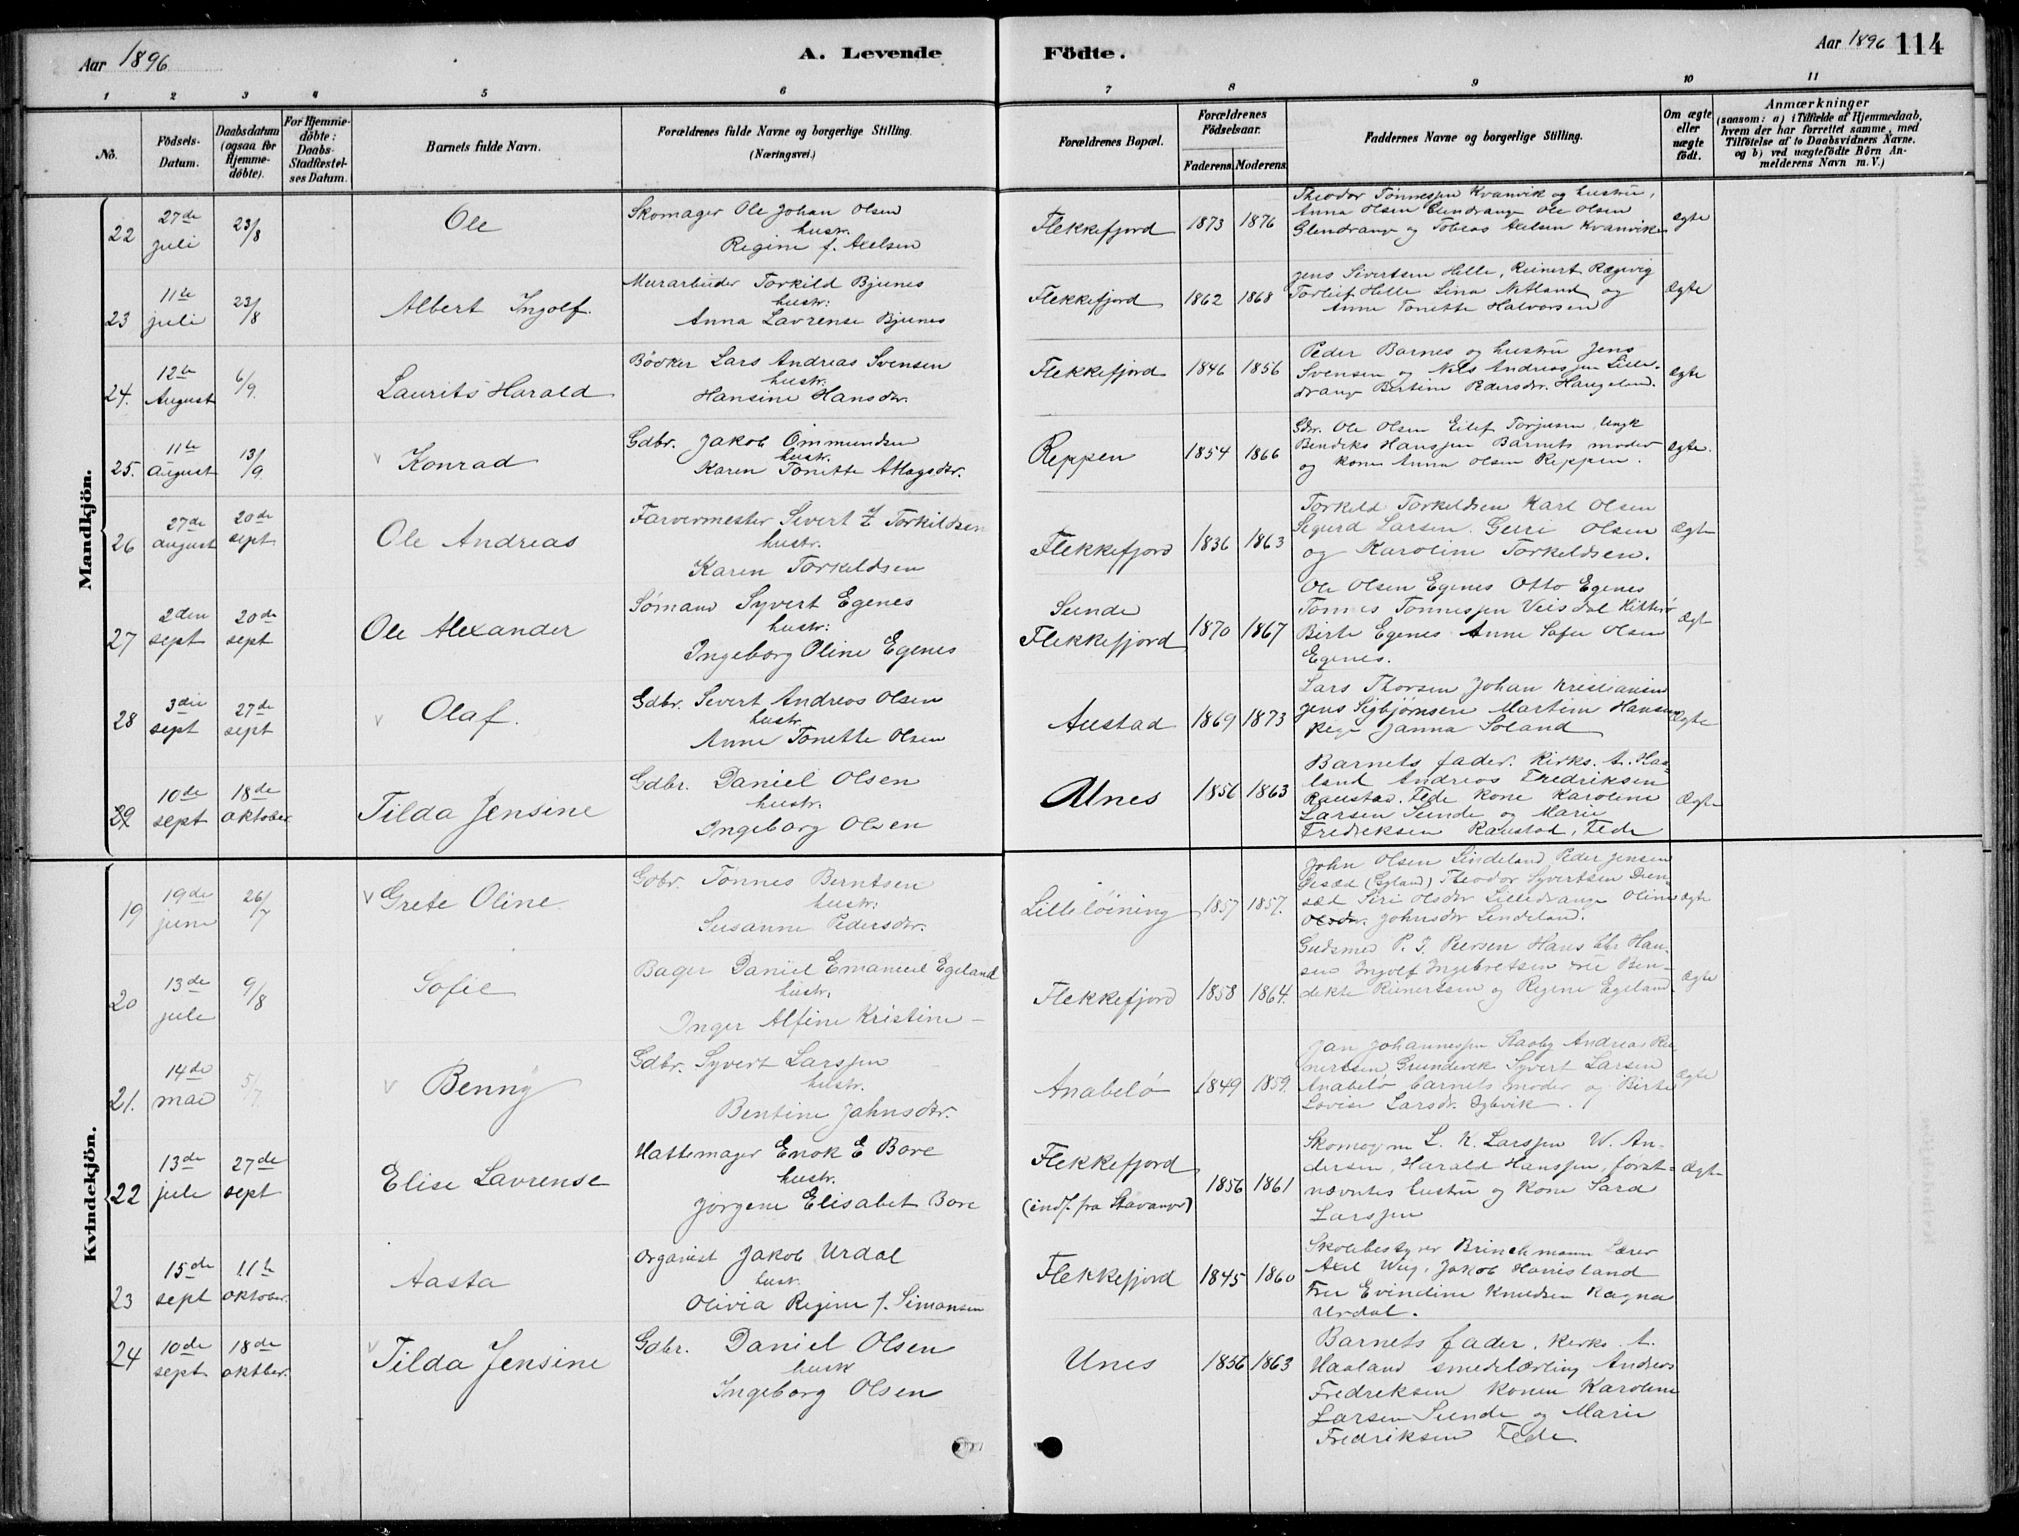 Aar 1896
A. Levende
Födte.
Aar 1896 114
1 2 3 4 5 6 7 8 9 10 11
No.
Födsels-Datum.
Daabsdatum (ogsaa for Hjemme-döbte).
For Hjemme-döbte: Daabs-Stadfæstel-ses Datum.
Barnets fulde Navn.
Forældrenes fulde Navne og borgerlige Stilling. (Næringsvei.)
Forældrenes Bopæl.
Forældrenes Födselsaar.
Faderens. Moderens.
Faddernes Navne og borgerlige Stilling.
Om ægte eller uægte födt.
Anmærkninger
(saasom: a) i Tilfælde af Hjemmedaab, hvem der har forrettet samme, med Tilföielse af to Daabsvidners Navne. og b) ved uægtefödte Börn An-melderens Navn m. V.)
Mandkjön.
22 27de juli 23/8 Ole
Skomager Ole Johan Olsen
hustr.
Regine f. Axelsen
Flekkefjord 1873 1876
Theodor Tønnessen Kvanvik og hustru,
Anna Olsen Glendrange Ole Olsen
Glendrange og Tobias Axelsen Kvanvik
ægte
23 11te juli 23/8 Albert Ingolf.
Murarbeider Torkild Bjunes
hustr:
Anna Lavrense Bjunes
Flekkefjord 1862 1868
Jens Sivertsen Helle, Reinert Rægevig
Torleif Helle Lina Netland og
Anne Tonette Halvorsen
Ægte
24. 12te August 6/9. Laurits Harald
Bødker Lars Andreas Svensen
hustr.
Hansine Hansdtr.
Flekkefjord 1846 1856
Peder Barnes og hustru Jens
Svensen og Nils Andreassen Lille-
drange Bertine Pedersdtr. Haugeland.
Ægte
25. 11te august 13/9. v Konrad
Gdbr. Jakob Ommundsen
hustr.
Karen Tonette Atlagsdtr.
Reppen 1854 1866
Gbr. Ole Olsen Eilef Torjusen Ungk
Bendiks Hanssen Barnets moder
og kone Anna Olsen Reppen.
ægte.
26 27de august 20de sept Ole Andreas
Farvermester Sivert Z Torkildsen
hustr.
Karen Torkeldsen
Flekkefjord 1836 1863
Torkild Torkeldsen Karl Olsen
Sigurd Larsen. Guri Olsen
og Karoline Torkeldsen.
Ægte
27 2den sept 20de sept Ole Alexander
Sømand Syvert Egenes
hustr:
Ingeborg Oline Egenes
Sunde
Flekkefjord 1870 1867
Ole Olsen Egenes Otto Egenes
Tønnes Tønnessen Veisdal Hitterø
Birte Egenes Anne Sofie Olsen
Egenes.
Ægt
28 3die sept 27de sept v Olaf.
Gdbr. Sivert Andreas Olsen
hustr.
Anne Tonette Olsen
Austad 1869 1873
Lars Thorsen Johan Kristiansen
Jens Sigbjørnsen Martine Hansen
Pige Janna Soland
Ægte
29 10de sept 18de oktober Tilda Jensine
Gdbr. Daniel Olsen
hustr.
Ingeborg Olsen
Unes 1856 1863
Barnets fader. Kirks. A. Haa-
land Andreas Fredriksen
Raustad. Fede kone Karoline
Larsen Sunde og Marie
Fredriksen Raustad, Fede
Ægte
Kvindekjön.
19 19de juni 26/7 v Grete Oline.
Gdbr. Tønnes Berntsen
hustr:
Susanne Pedersdtr.
Lilleløining 1857 1857.
John Olsen Lindeland Peder Jensen
(Gyland) Theodor Syvertsen
Siri Olsdtr Lilledrange Oline
Olsdtr. Johnsdtr Lindeland.
Ægte
20 13de juli 9/8 Sofie
Bager Daniel Emanuel Egeland
hustr.
Inger Alfine Kristine —
Flekkefjord 1858 1864.
Guldsmed P. J. Peersen Hans Chr Han-
sen Ingolf Ingebretsen Fru Ben-
dikte Reinertsen og Regine Egeland
Ægte
21. 14de mai 5/7. v Benny
Gdbr. Syvert Larssen
hustr.
Bentine Jahnsdtr.
Anabelø 1849 1859.
Jan Johannessen Andreas Rei-
nertsen Grundevik Syvert Larsen
Anabelø barnets moder og Birte
Lovise Larsdtr.
Ægte
22 13de juli 27de sept Elise Lavrense
Hattemager Enok E Bore
hustr.
Jørgene Elisabet Bore
Flekkefjord
(indf. fra Stavanger) 1856 1861
L. K. Larssen W. An-
dersen, Harald Hanssen, først-
nævntes hustru og kone Sara
Larssen
Ægte
23 15de sept 11te oktober. Aasta
Organist Jakob Urdal
hustr.
Olivia Regine f. Simonsen
Flekkefjord 1845 1860
Skolebestyrer Brinchmann Lærer
Axel Wiig, Jakob Hanisland
Fru Evindine Knudsen Ragna
Urdal.
24 10de sept 18de oktber. v Tilda Jensine
Gdbr. Daniel Olsen
hustr
Ingeborg Olsen
Unes 1856 1863
Barnets fader, Kirks. A.
Haaland smedelærling Andreas
Fredriksen konen Karoline
Larsen Sunde og Marie
Fredriksen Fede.